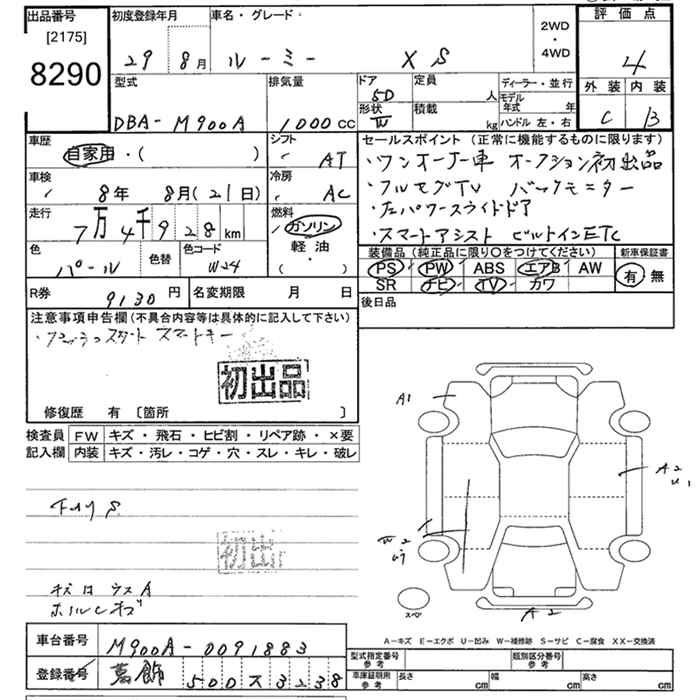 出品番号
[2175]
8290
初度登録年月 車名・グレード
29 8月 ルーミー XS
2WD
・
4WD
評価点
4
外装 内装
C B
型式 排気量
DBA-M900A 1000CC
ドア 5D 定員 人
形状 積載 kg
ディーラー・並行
モデル年式 年
ハンドル 左・右
車歴
自家用・( )
シフト AT
車検
8年 8月(21日)
冷房 AC
走行
7万4千928km
燃料
ガソリン
軽油
・( )
色 パール 色替 色コード W24
R券 9130円 名変期限 月 日
セールスポイント(正常に機能するものに限ります)
・ワンオーナー車 オークション初出品
・フルセグTV バックモニター
・左パワースライドドア
・スマートアシスト ビルトインETC
装備品(純正品に限り○をつけてください)
PS PW ABS エアB AW
SR ナビ TV カワ
新車保証書
有 無
後日品
注意事項申告欄(不具合内容等は具体的に記入して下さい)
・プッシュスタート スマートキー
初出品
修復歴 有 [箇所 ]
検査員記入欄
FW キズ・飛石・ヒビ割・リペア跡・×要
内装 キズ・汚レ・コゲ・穴・スレ・キレ・破レ
初出
A1
A2
U1
W2
A2
スペ
A-キズ E-エクボ U-凹み W-補修跡 S-サビ C-腐食 XX-交換済
車台番号 M900A-0091883
登録番号 葛飾 500ス3238
型式指定番号 参考 類別区分番号 参考
車庫証明用 参考 長さ cm 幅 cm 高さ cm